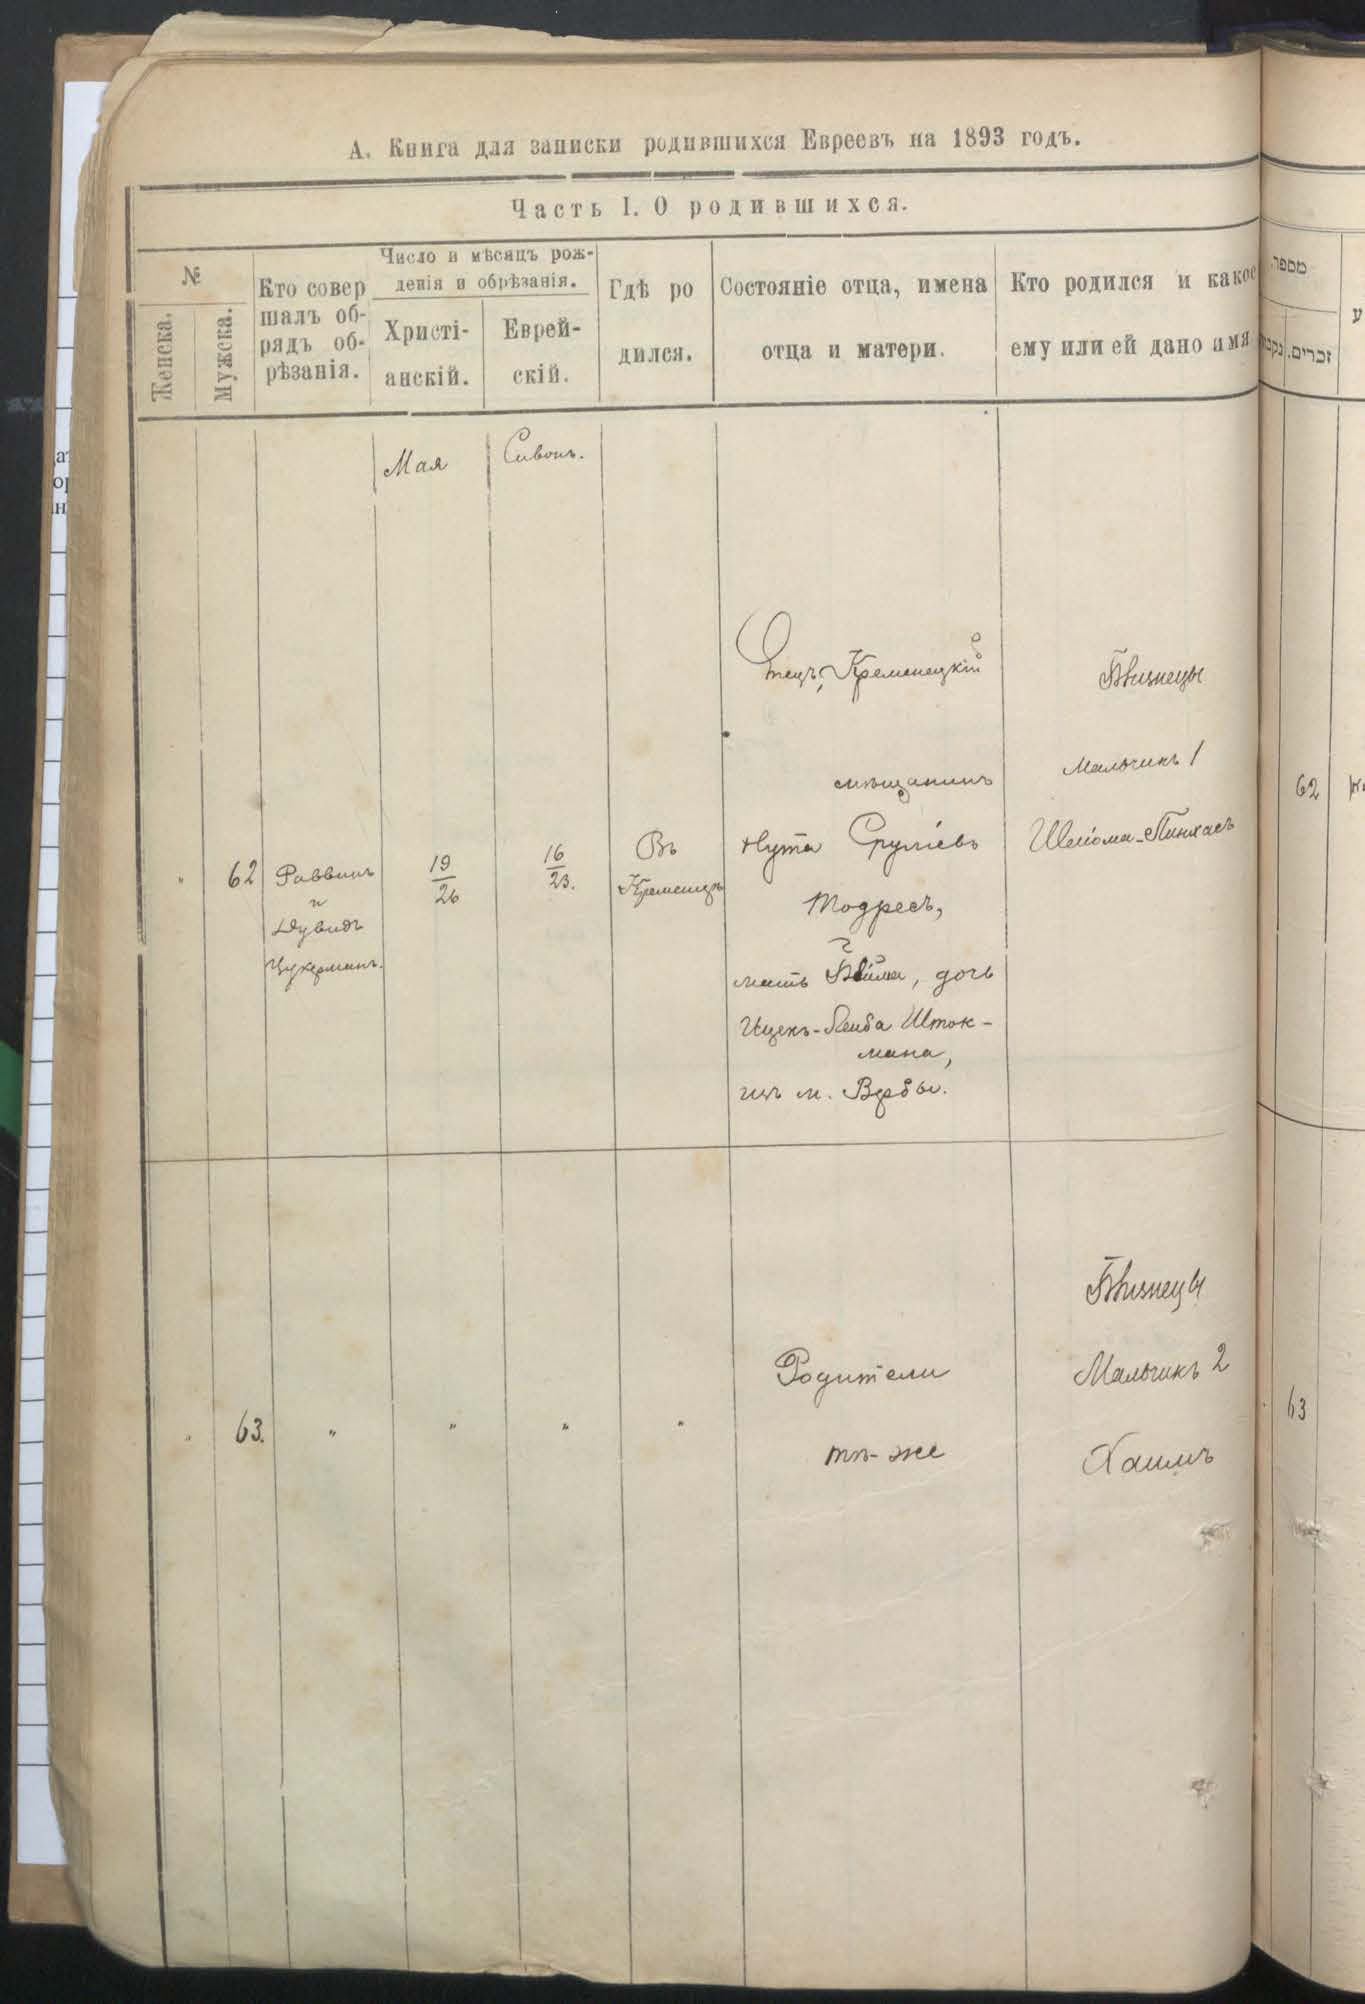 А. Книга для записки родившихся Евреевъ на 1893 годъ.
Часть I. О родившихся.
№
Женска.
Мужска.
Кто совер
шалъ об-
рядъ об-
рѣзанія.
Число и мѣсяцъ рож-
денія и обрѣзанія.
Христі-
анскій.
Еврей-
скій.
Гдѣ ро
дился.
Состояніе отца, имена
отца и матери.
Кто родился и какое
ему или ей дано имя
מספר.
זכרים.
Мая
Сивонъ.
"
62
Раввинъ
и
Дувидъ
Цукерманъ.
19
26
16
23.
Въ
Кременцѣ
Отецъ, Кременецкій
мѣщанинъ
Нута Срулiевъ
Тодресъ,
мать, дочь
Ицекъ-Лейба Шток-
мана,
изъ м. Вербы.
Близнецы
Мальчикъ 1
Шлiома-Пинхасъ
62
"
63.
"
"
"
"
Родители
тѣ-же
Близнецы
Мальчикъ 2
Хаимъ
63